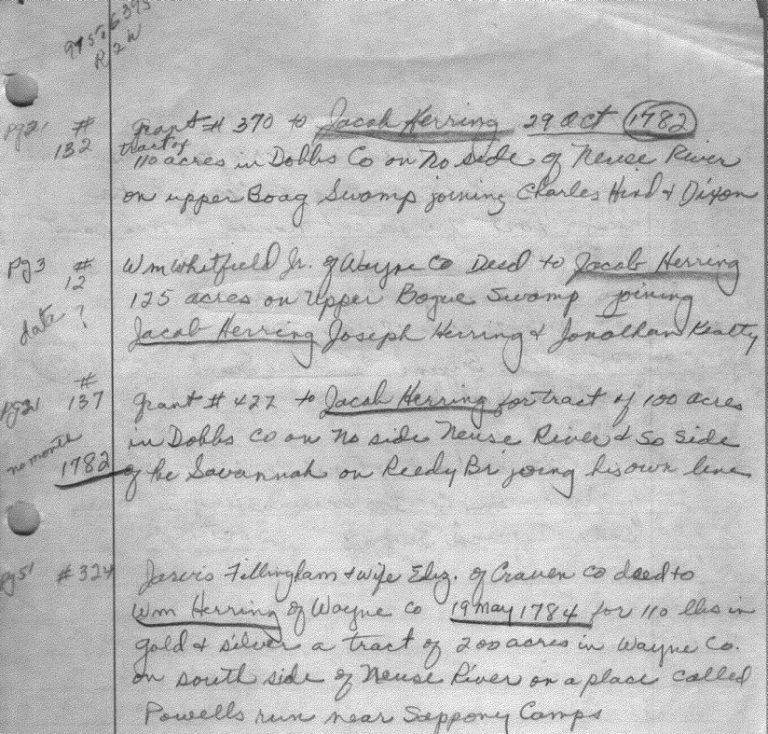 975.6395
R2W
pg 21 # 132 Grant # 370 to Jacob Herring 29 Oct 1782
tract of
110 acres in Dobbs Co on No side of Neuse River
on upper Boag Swamp joining Charles Hind & Dixon
pg 3 # 12 Wm Whitfield Jr. of Wayne Co Deed to Jacob Herring
125 acres on Upper Bogue Swamp joining
date ? Jacob Herring Joseph Herring & Jonathan Keatty
pg 21 # 137 Grant # 422 to Jacob Herring for tract of 100 acres
no month in Dobbs Co on No side Neuse River & So side
1782 of he Savannah on Reedy Br joing his own line
pg 51 # 324 Jarvis Fillingham & wife Eliz. of Craven Co deed to
Wm Herring of Wayne Co 19 May 1784 for 110 lbs in
gold & silver a tract of 200 acres in Wayne Co.
on south side of Neuse River on a place called
Powells run near Sappony Camps